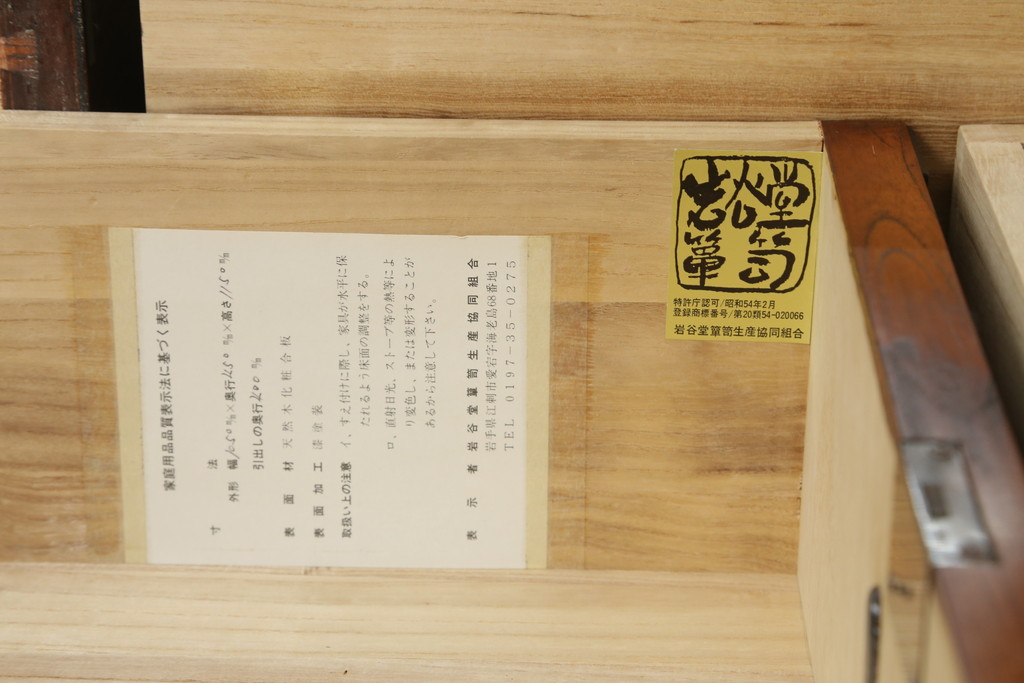 家庭用品品質表示法に基づく表示
寸 法
外形 幅1050㎜×奥行450㎜×高さ1150㎜
引出しの奥行400㎜
表面材 天然木化粧合板
表面加工 漆塗装
取扱い上の注意 イ、すえ付けに際し、家具が水平に保
たれるよう床面の調整をする。
ロ、直射日光、ストーブ等の熱等によ
り変色し、または変形することが
あるから注意して下さい。
表示者 岩谷堂簞笥生産協同組合
岩手県江刺市愛宕字海老島68番地1
TEL 0197-35-0275
岩谷堂
簞笥
特許庁認可/昭和54年2月
登録商標番号/第20類54-020066
岩谷堂簞笥生産協同組合